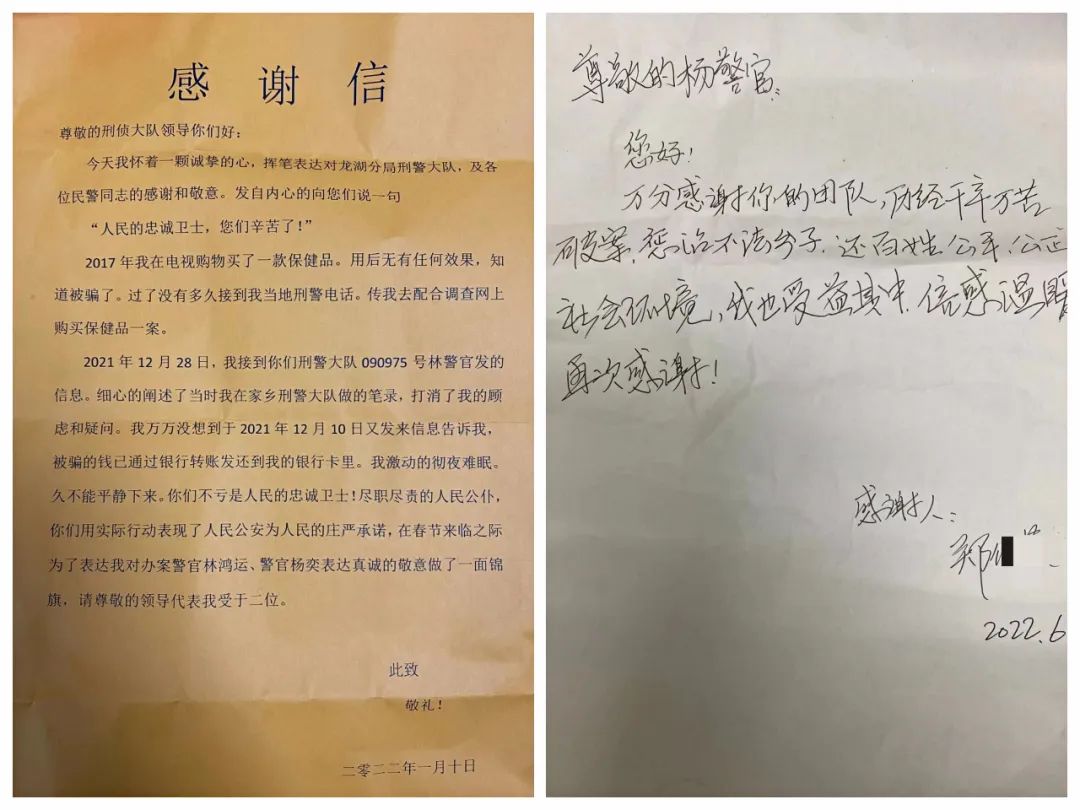 感谢信
尊敬的刑侦大队领导你们好：
今天我怀着一颗诚挚的心，挥笔表达对龙湖分局刑警大队，及各
位民警同志的感谢和敬意。发自内心的向您们说一句
“人民的忠诚卫士，您们辛苦了！”
2017年我在电视购物买了一款保健品。用后无有任何效果，知
道被骗了。过了没有多久接到我当地刑警电话。传我去配合调查网上
购买保健品一案。
2021年12月28日，我接到你们刑警大队090975号林警官发的
信息。细心的阐述了当时我在家乡刑警大队做的笔录，打消了我的顾
虑和疑问。我万万没想到于2021年12月10日又发来信息告诉我，
被骗的钱已通过银行转账发还到我的银行卡里。我激动的彻夜难眠。
久不能平静下来。你们不亏是人民的忠诚卫士！尽职尽责的人民公仆，
你们用实际行动表现了人民公安为人民的庄严承诺，在春节来临之际
为了表达我对办案警官林鸿运、警官杨奕表达真诚的敬意做了一面锦
旗，请尊敬的领导代表我受于二位。
此致
敬礼！
二零二二年一月十日
尊敬的杨警官：
您好！
万分感谢你的团队，历经千辛万苦
破案，惩治不法分子，还百姓公平，公正
社会环境，我也受益其中，倍感温暖
再次感谢！
感谢人：
郑
2022.6